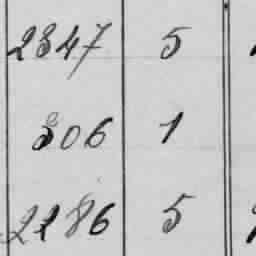 2347 5
306 1
2286 5